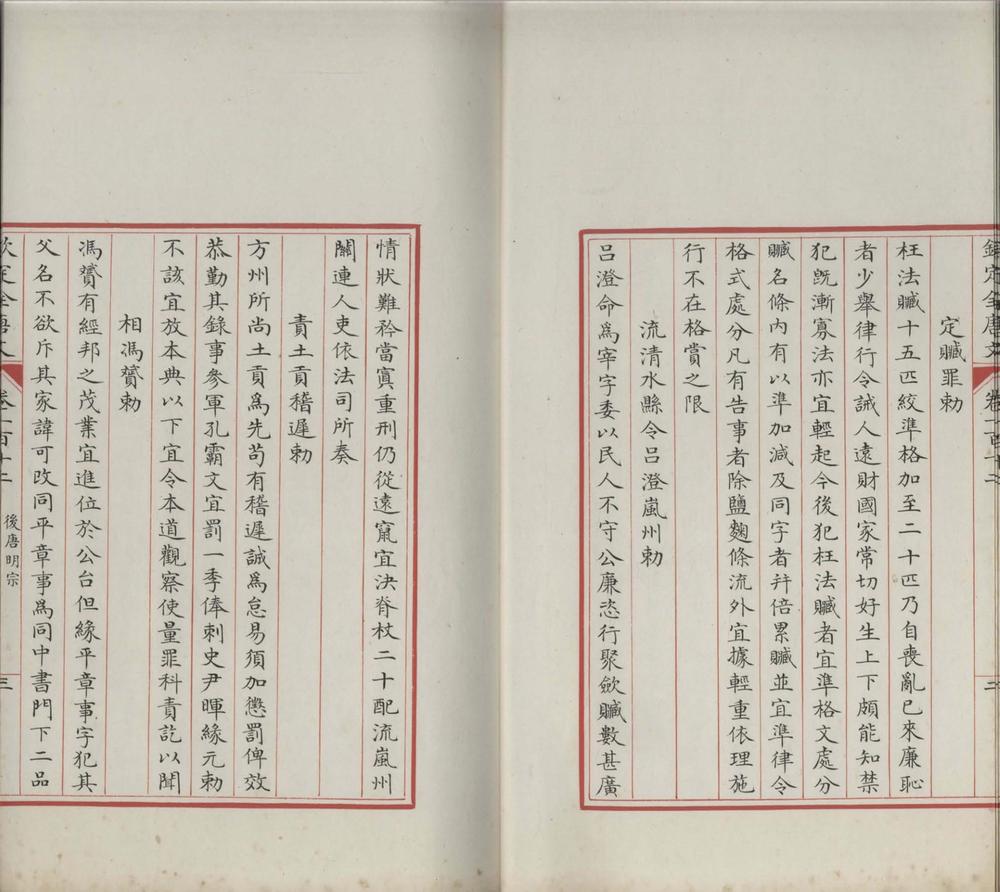 欽定全唐文 卷一百十二 二
定贓罪勅
枉法贓十五匹絞準格加至二十匹乃自喪亂已來廉恥
者少舉律行令誡人遠財國家常切好生上下頗能知禁
犯旣漸寡法亦宜輕起今後犯枉法贓者宜準格文處分
贓名條內有以準加減及同字者幷倍累贓並宜準律令
格式處分凡有告事者除鹽麴條流外宜據輕重依理施
行不在格賞之限
流清水縣令呂澄嵐州勅
呂澄命爲宰字委以民人不守公廉恣行聚斂贓數甚廣
情狀難矜當寘重刑仍從遠竄宜決脊杖二十配流嵐州
關連人吏依法司所奏
責土貢稽遲勅
方州所尚土貢爲先苟有稽遲誠爲怠易須加懲罰俾效
恭勤其錄事參軍孔霸文宜罰一季俸刺史尹暉緣元勅
不該宜放本典以下宜令本道觀察使量罪科責訖以聞
相馮贇勅
馮贇有經邦之茂業宜進位於公台但緣平章事字犯其
父名不欲斥其家諱可改同平章事爲同中書門下二品
欽定全唐文 卷一百十二 後唐明宗 三